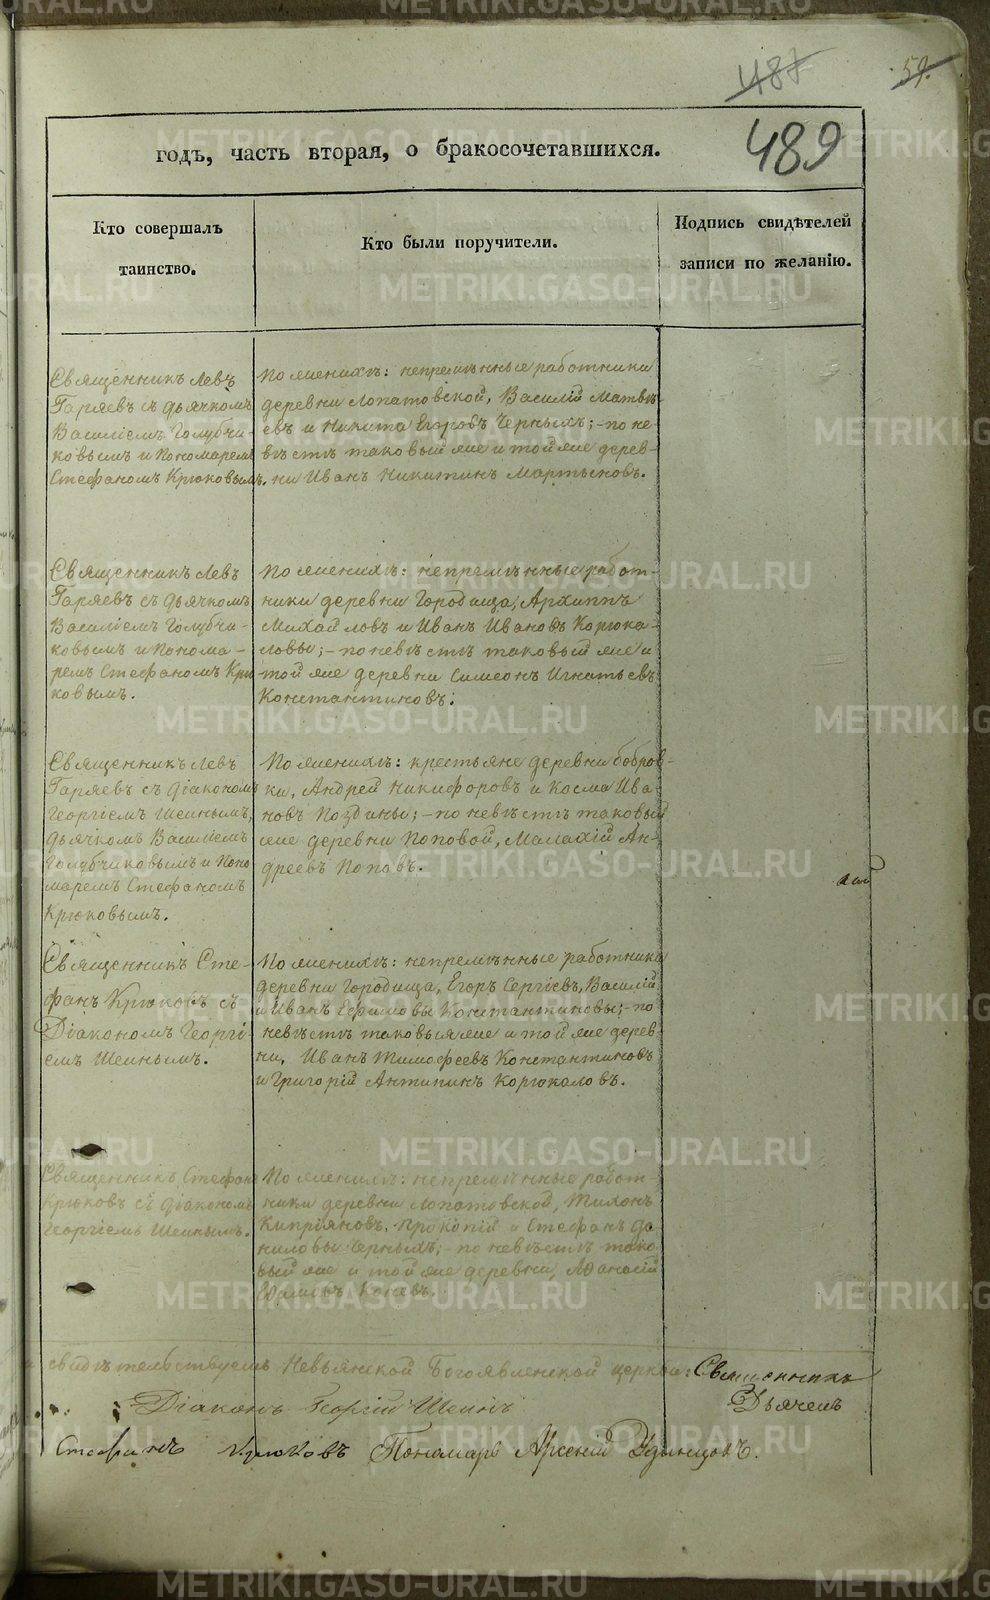 487
59.
489
годъ, часть вторая, о бракосочетавшихся.
Кто совершалъ
таинство.
Кто были поручители.
Подпись свидѣтелей
записи по желанію.
Священникъ Левъ
Гаряевъ съ дьячкомъ
Василіемъ Голубчи-
ковымъ и Пономаремъ
Стефаномъ Крюковымъ.
По женихѣ: непремѣнные работники
деревни Лопатовской, Василій Матвѣ
евъ и Никита Егоровъ Черныхъ; - по не-
вѣстѣ таковый же и той же дерев-
ни Иванъ Никитинъ Мартьяновъ.
Священникъ Левъ
Гаряевъ съ дьячкомъ
Василіемъ Голубчи-
ковымъ и Понома-
ремъ Стефаномъ Крю
ковымъ.
По женихѣ: непремѣнные работ-
ники деревни Городища, Архиппъ
Михайловъ и Иванъ Ивановъ Корюка-
ловы; - по невѣстѣ таковый же и
той же деревни Симеонъ Игнатьевъ
Константиновъ.
Священникъ Левъ
Гаряевъ съ діакономъ
Георгіемъ Шеинымъ,
дьячкомъ Василіемъ
Голубчиковымъ и Поно
маремъ Стефаномъ
Крюковымъ.
По женихѣ: крестьяне деревни Бобров-
ки, Андрей Никифоровъ и Косма Ива
новъ Поздины; - по невѣстѣ таковый
же деревни Поповой, Малахій Ан-
дреевъ Поповъ.
Священникъ Сте-
фанъ Крюковъ съ
Діакономъ Георгі-
емъ Шеинымъ.
По женихѣ: непремѣнные работники
деревни Городища, Егоръ Сергіевъ, Василій
и Иванъ Ефимовы Константиновы; - по
невѣстѣ таковыя же и той же дерев-
ни, Иванъ Тимофеевъ Константиновъ
и Григорій Антипинъ Корюкаловъ.
Священникъ Стефанъ
Крюковъ съ діакономъ
Георгіемъ Шеинымъ.
По женихѣ: непремѣнные работ-
ники деревни Лопатовской, Тихонъ
Кипріяновъ, Прокопій и Стефанъ Да
ниловы Черныхъ; - по невѣстѣ тако
вый же и той же деревни, Афанасій
свидѣтельствуемъ Невьянской Богоявленской церкви: Священникъ
Діаконъ Георгій Шеинъ
Дьячекъ
Стефанъ Крюковъ Пономарь Арсеній Удинцовъ.
METRIKI.GASO-URAL.RU